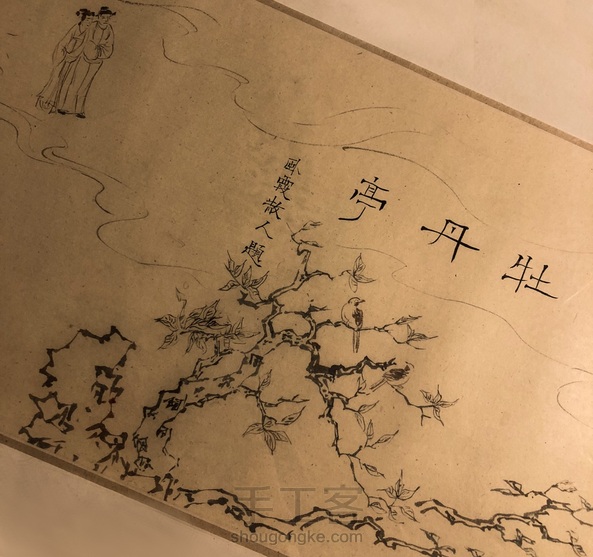 牡丹亭
卧霞散人题
手工客
shougongke.com